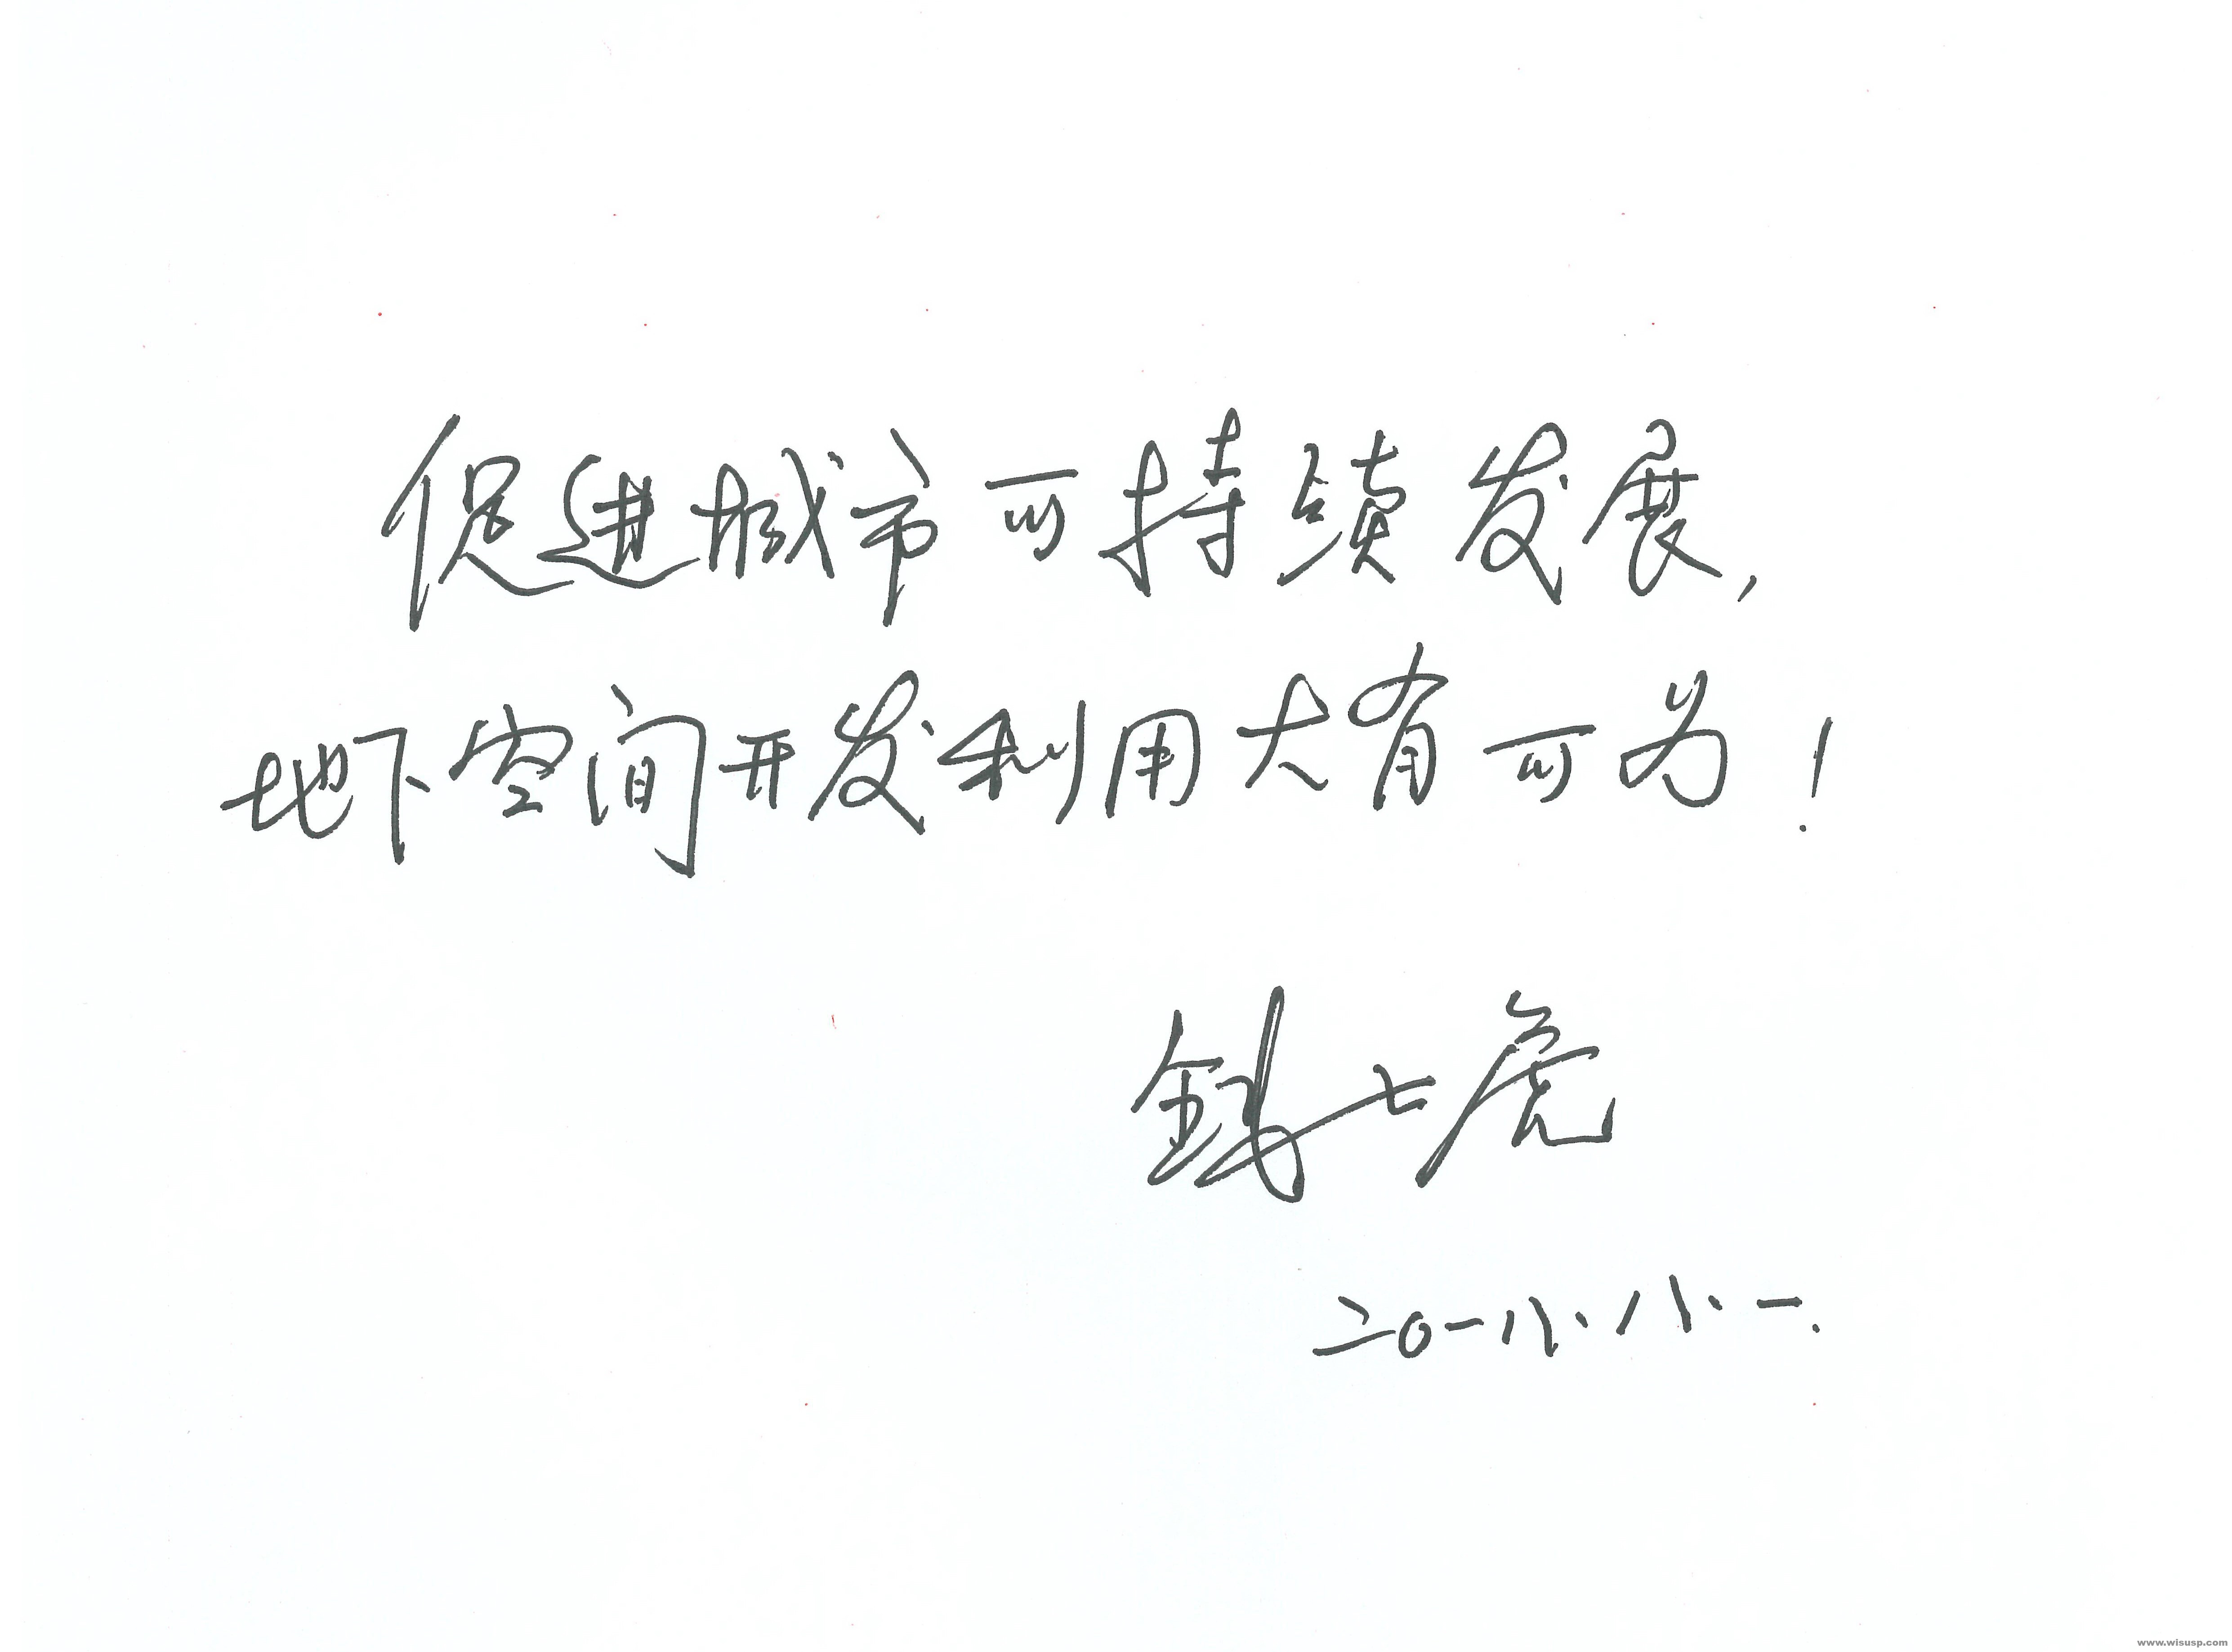 促进城市可持续发展,
地下空间开发利用大有可为!
钱七虎
二〇一八.八.一.
www.wisusp.com